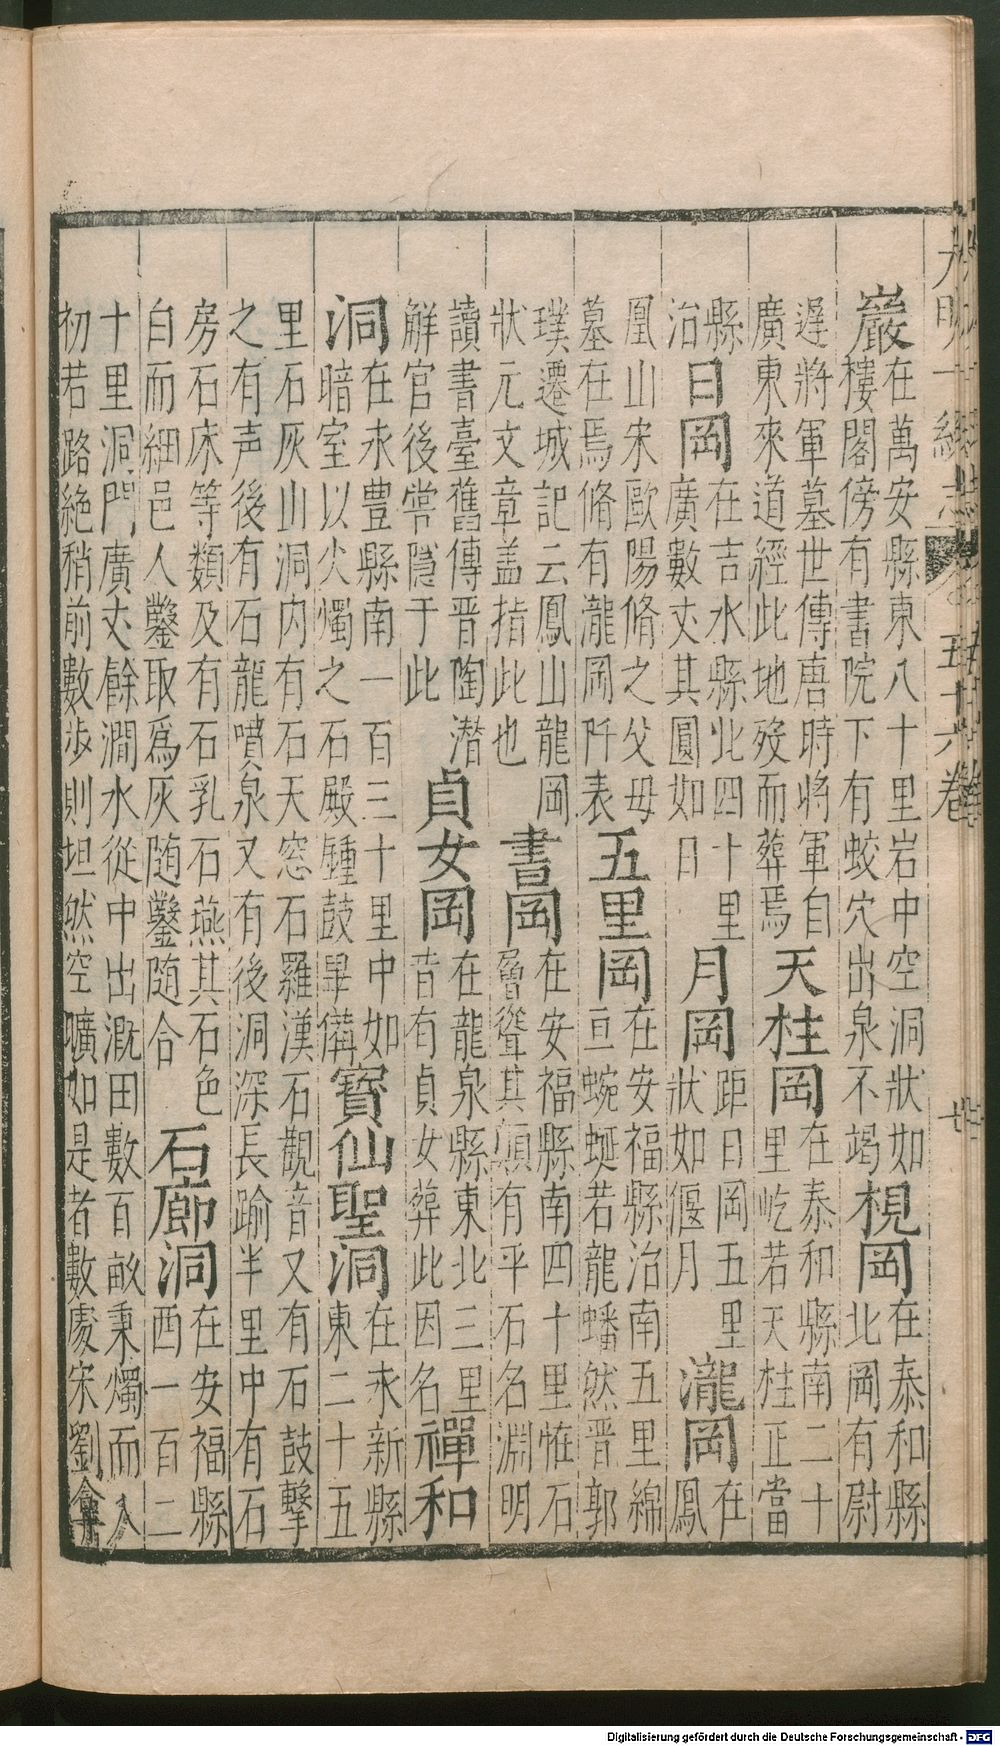 大明一統志 五十六卷 七
巖在萬安縣東八十里岩中空洞狀如
樓閣傍有書院下有蛟穴出泉不竭梘岡在泰和縣
北岡有尉
遲將軍墓世傳唐時將軍自
廣東來道經此地歿而葬焉天柱岡在泰和縣南二十
里屹若天柱正當
縣
治日岡在吉水縣北四十里
廣數丈其圓如日月岡距日岡五里
狀如偃月瀧岡在
鳳
凰山宋歐陽脩之父母
墓在焉脩有瀧岡阡表五里岡在安福縣治南五里綿
亘蜿蜒若龍蟠然晉郭
璞遷城記云鳳山龍岡
狀元文章盖指此也書岡在安福縣南四十里恠石
層聳其顛有平石名淵明
讀書臺舊傳晉陶潜
解官後嘗隱于此貞女岡在龍泉縣東北三里
昔有貞女葬此因名禪和
洞在永豊縣南一百三十里中如
暗室以火燭之石殿鍾鼓畢備寶仙聖洞在永新縣
東二十五
里石灰山洞内有石天窓石羅漢石觀音又有石鼓擊
之有声後有石龍噴泉又有後洞深長踰半里中有石
房石床等類及有石乳石燕其石色
白而細邑人鑿取爲灰随鑿随合石廊洞在安福縣
西一百二
十里洞門廣丈餘澗水從中出溉田數百畝秉燭而入
初若路絶稍前數歩則坦然空曠如是者數處宋劉弇
Digitalisierung gefördert durch die Deutsche Forschungsgemeinschaft - DFG